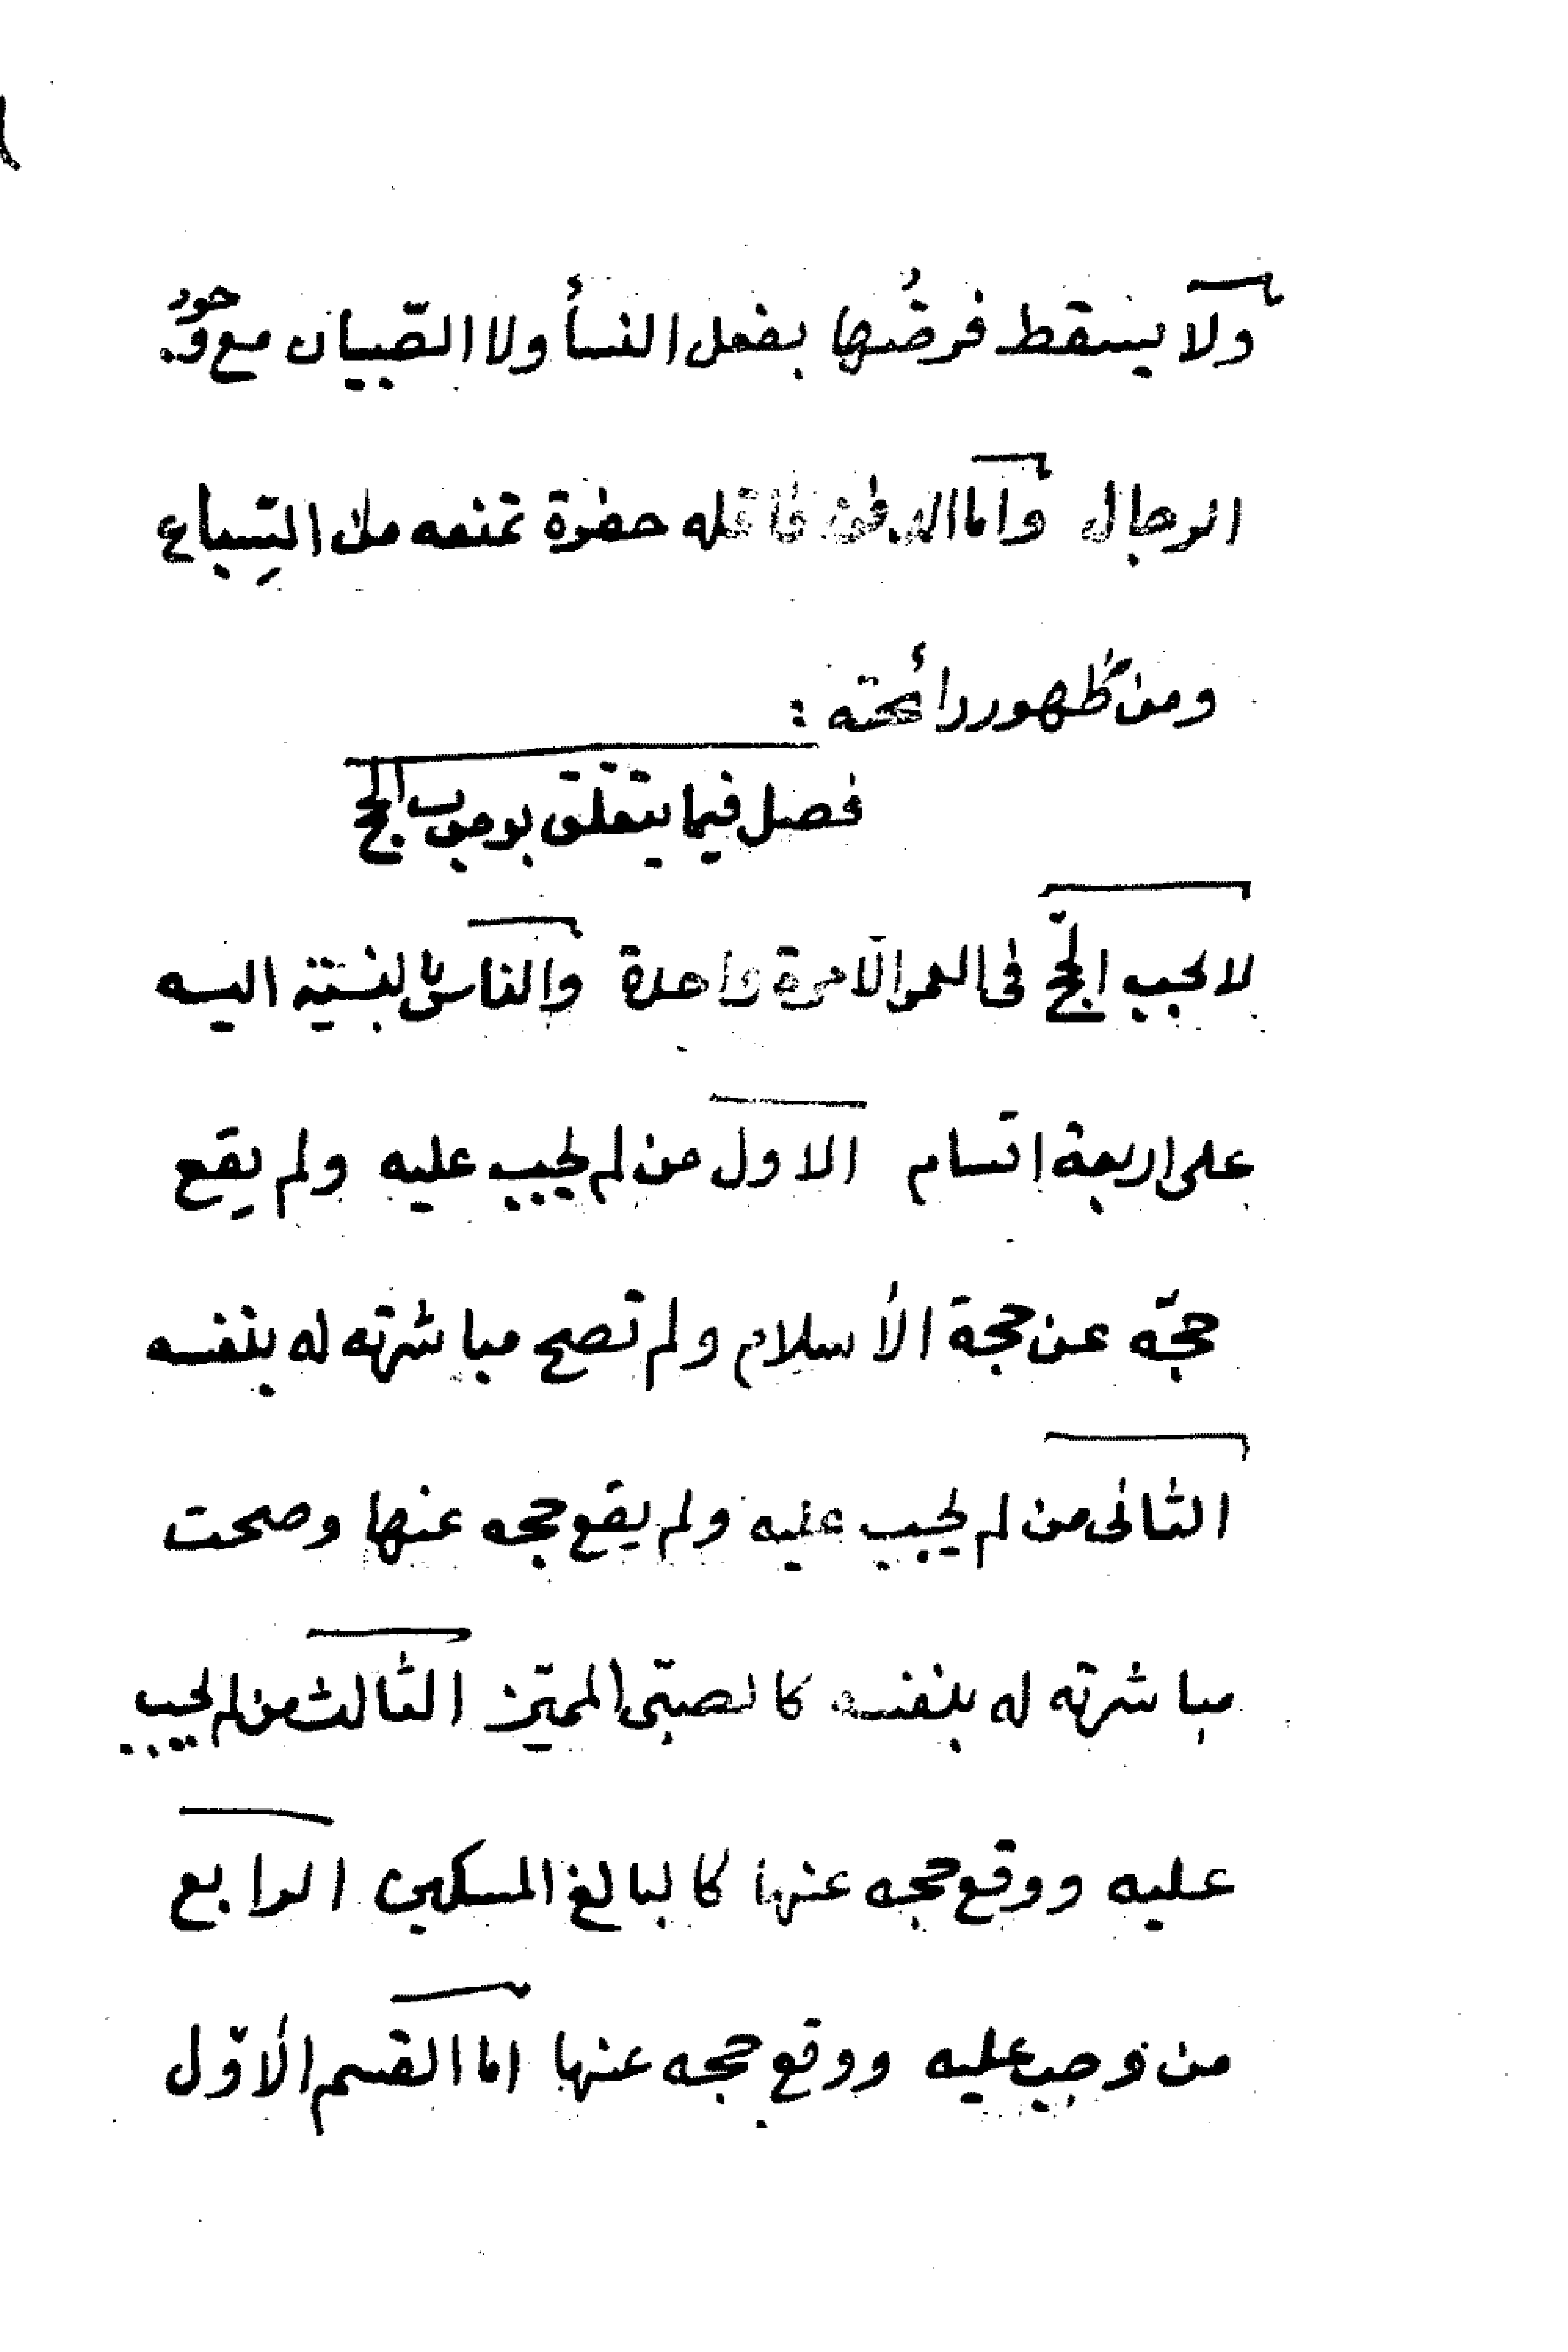 ولا يسقط فرضُها بفعل النسأ ولا الصّبيان مع وجود
الرجال واما الدفن فاقله حفرة تمنعه من السِّباع
ومن ظُهور رائحته :
فصل فيما يتعلّق بوجوب الحج
لا يجب الحجّ فى العمر الّا مرة واحدة والناس بالنسبة اليه
على اربعة اقسام الاول من لم يجب عليه ولم يقع
حجّه عن حجة الأسلام ولم تصح مباشرته له بنفسه
الثانى من لم يجب عليه ولم يقع حجه عنها وصحت
مباشرته له بنفسه كالصبىّ المميّز الثالث من لم يجب
عليه ووقع حجه عنها كالبالغ المسكين الرابع
من وجب عليه ووقع حجه عنها اما القسم الأوّل